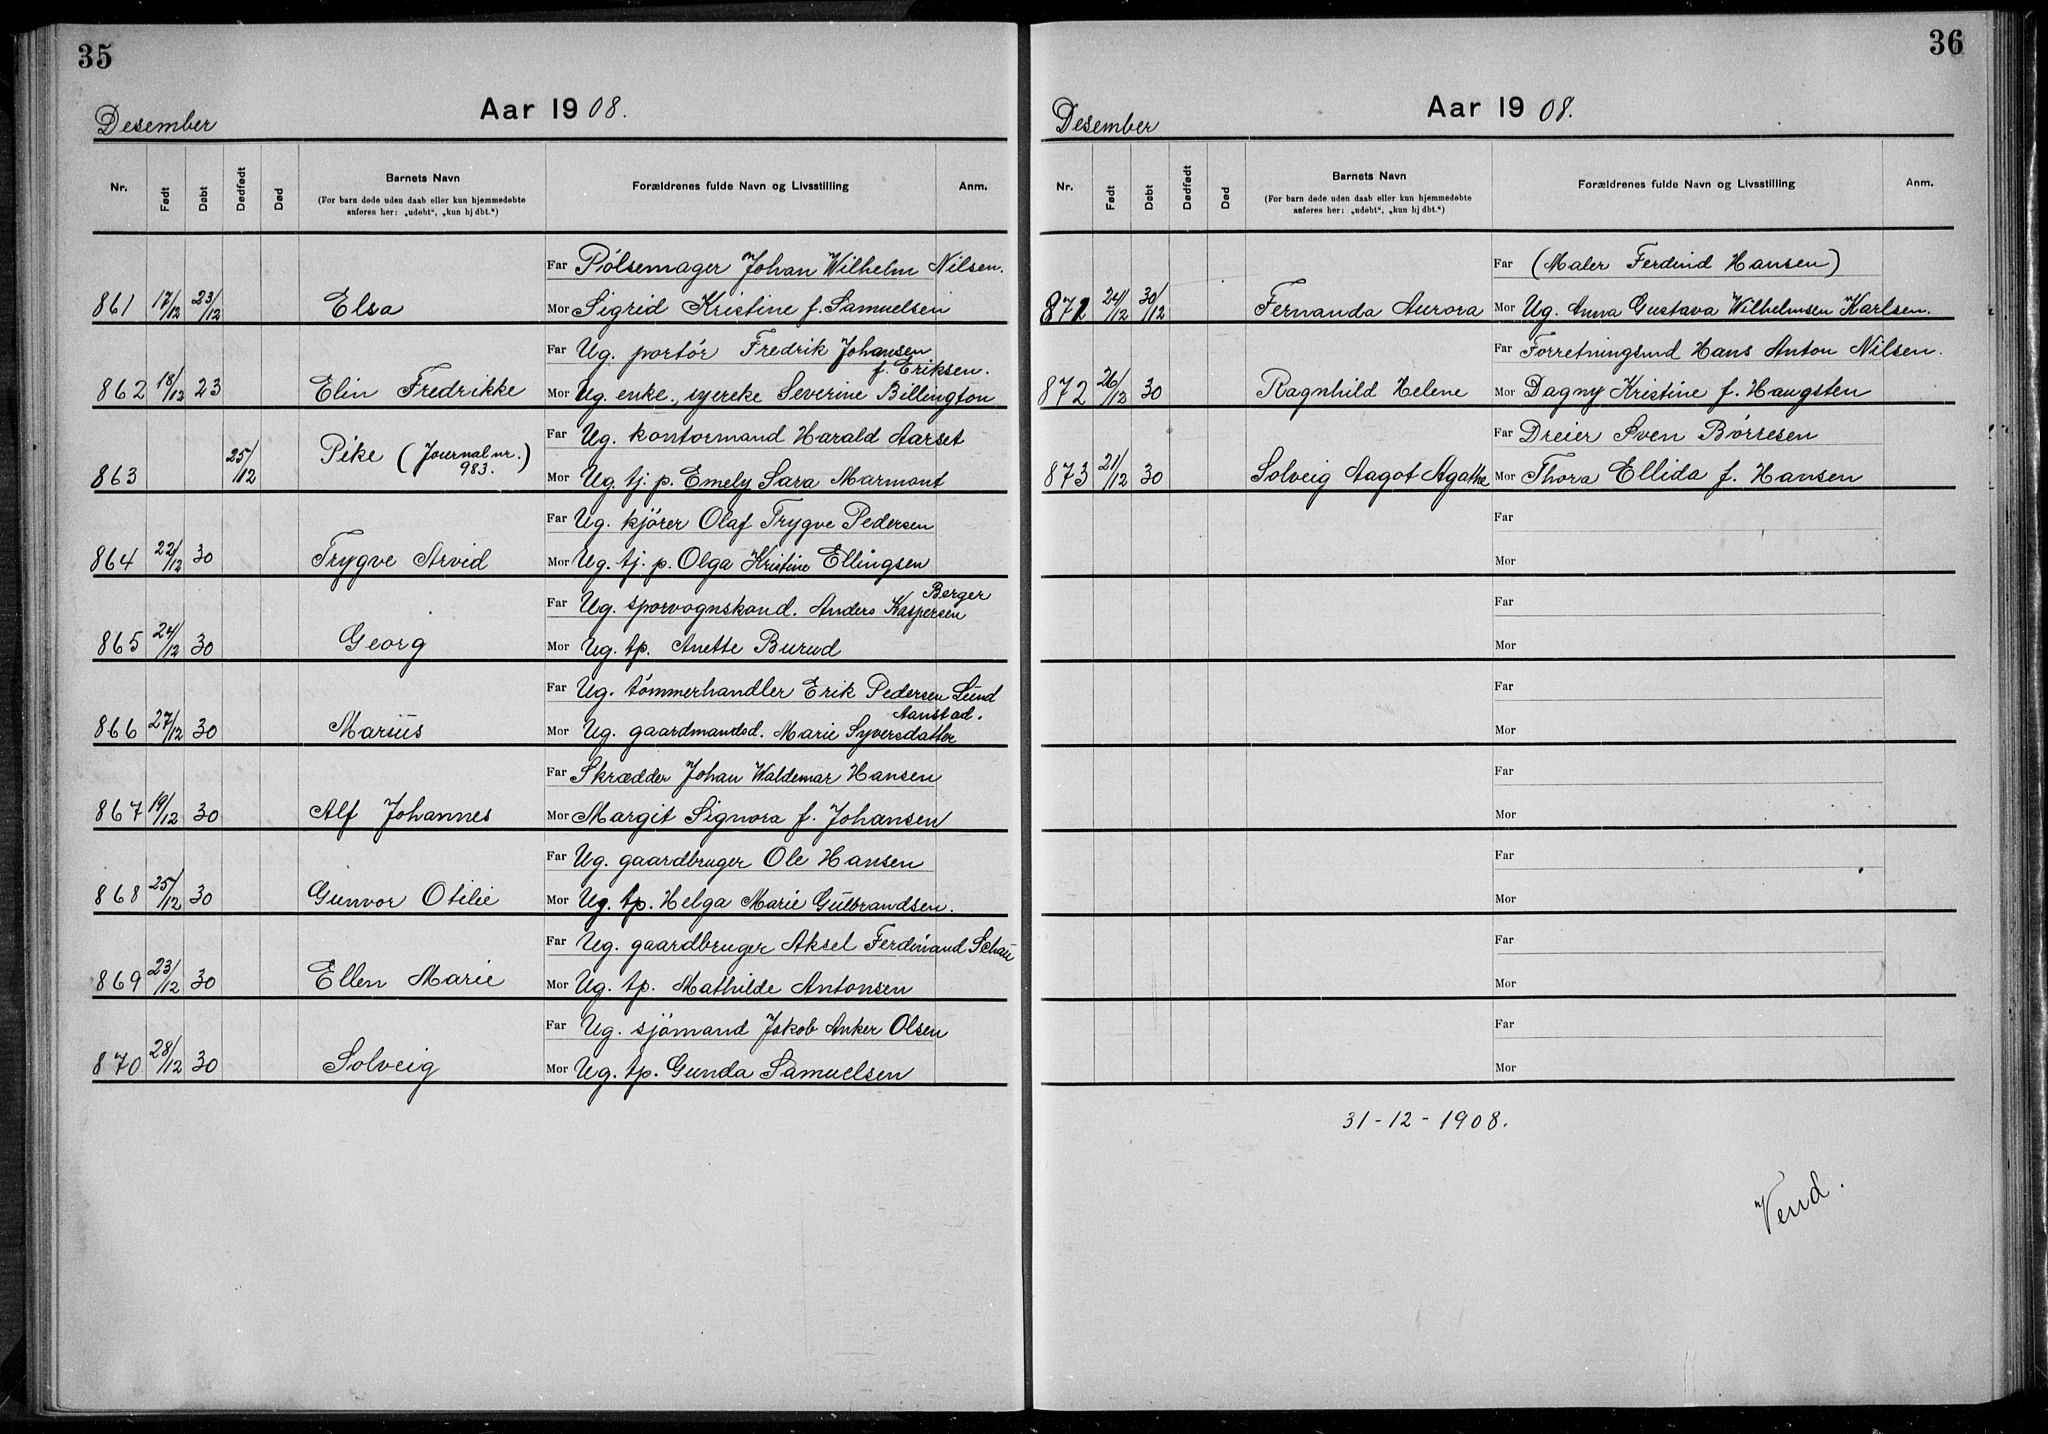 35
Desember
Aar 1908.
Nr. Født Døbt Dødfødt Død Barnets Navn Forældrenes fulde Navn og Livsstilling Anm.
(For barn døde uden daab eller kun hjemmedøbte
anføres her: „udøbt“, „kun hj dbt.“)
Far Pølsemager Johan Wilhelm Nilsen.
861 17/12 23/12 Elsa Mor Sigrid Kristine f. Samuelsen
Far Ug. portør Fredrik Johansen
f. Eriksen.
862 18/12 23 Elin Fredrikke Mor Ug. enke., syerske Severine Billington
Far Ug. kontormand Harald Aarset
863 25/12 Pike (Journal nr. 983.) Mor Ug. tj. p. Emely Sara Marmont
Far Ug. kjører Olaf Trygve Pedersen
864 22/12 30 Trygve Arvid Mor Ug. tj. p. Olga Kristine Ellingsen
Berger
Far Ug. sporvognskond. Anders Kaspersen
865 24/12 30 Georg Mor Ug. tp. Anette Burud
Far Ug. tømmerhandler Erik Pedersen Lund
Aanstad.
866 27/12 30 Marius Mor Ug. gaardmandsd. Marie Syversdatter
Far Skrædder Johan Waldemar Hansen
867 19/12 30 Alf Johannes Mor Margit Signora f. Johansen
Far Ug. gaardbruger Ole Hansen
868 25/12 30 Gunvor Otilie Mor Ug. tp. Helga Marie Gulbrandsen.
Far Ug. gaardbruger Aksel Ferdinand Schau
869 23/12 30 Ellen Marie Mor Ug. tp. Mathilde Antonsen
Far Ug. sjømand Jakob Anker Olsen
870 28/12 30 Solveig Mor Ug. tp. Gunda Samuelsen
36
Desember
Aar 1908.
Nr. Født Døbt Dødfødt Død Barnets Navn Forældrenes fulde Navn og Livsstilling Anm.
(For barn døde uden daab eller kun hjemmedøbte
anføres her: „udøbt“, „kun hj dbt.“)
Far (Maler Ferdind Hansen)
871 24/12 30/12 Fernanda Aurora Mor Ug. Anna Gustava Wilhelmsen Karlsen.
Far Forretningsmd Hans Anton Nilsen.
872 26/12 30 Ragnhild Helene Mor Dagny Kristine f. Haugsten
Far Dreier Sven Børresen
873 21/12 30 Solveig Aagot Agathe Mor Thora Ellida f. Hansen
Far
Mor
Far
Mor
Far
Mor
Far
Mor
Far
Mor
Far
Mor
Far
Mor
31-12-1908.
Vend.